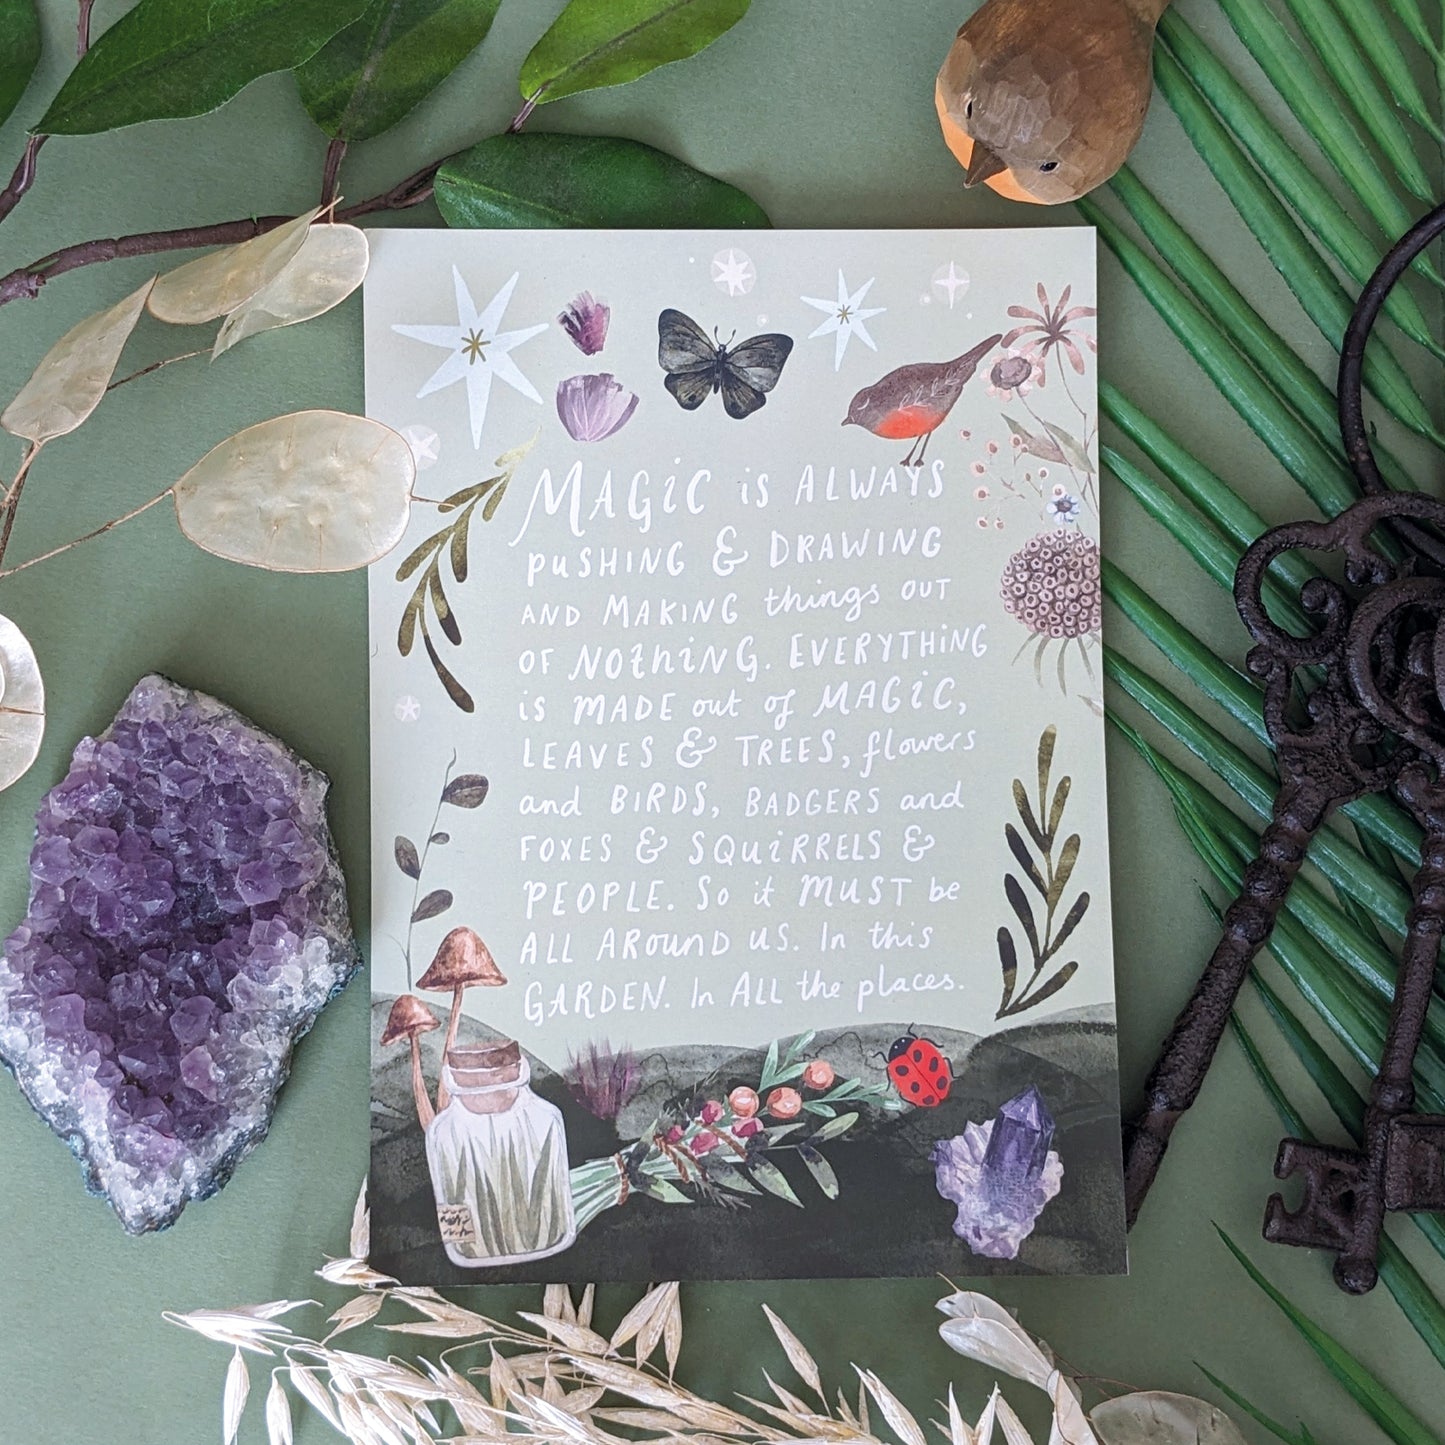 MAGiC is ALWAYS
PUSHING & DRAWING
AND MAKING things OUT
OF NOthiNG. EVERYTHiNG
is MADE out of MAGiC,
LEAVES & TREES, flowers
and BIRDS, BADGERS and
FOXES & SQUiRRELS &
PEOPLE. So it MUST be
ALL AROUND US. In this
GARDEN. In ALL the places.